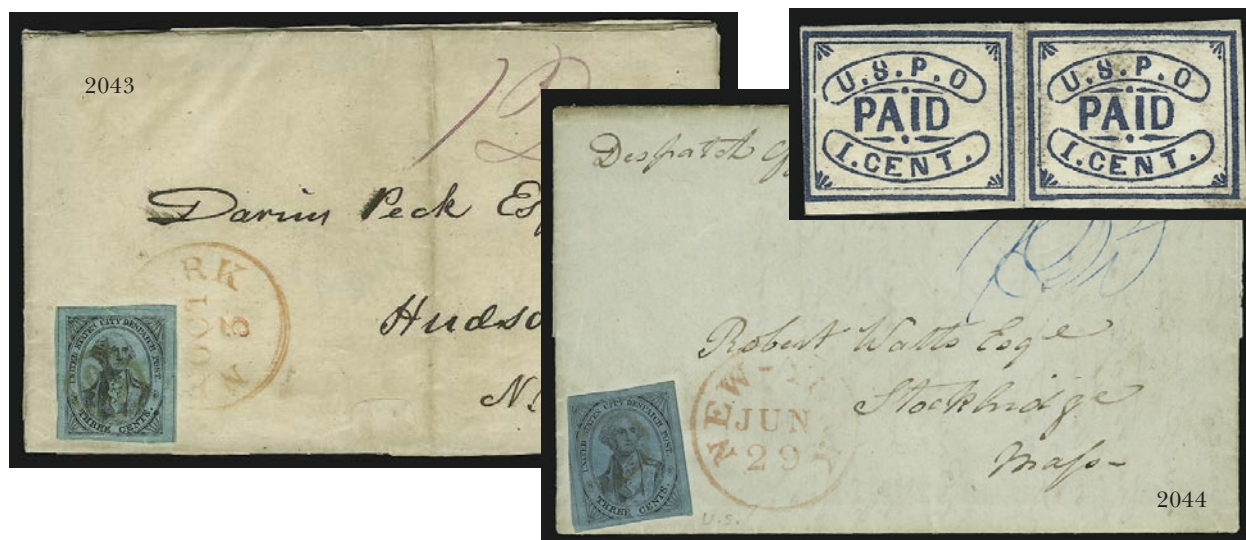 2043
Darius Peck Esq
Hudso
N.
RK
OCT
5
N
UNITED STATES CITY DESPATCH POST.
THREE CENTS.
U.S.P.O
PAID
1.CENT.
U.S.P.O
PAID
1.CENT.
Despatch
Robert Watts Esqe
Stockbridge
Mass
NEW-Y
JUN
29
UNITED STATES CITY DESPATCH POST.
THREE CENTS.
U.S.
2044